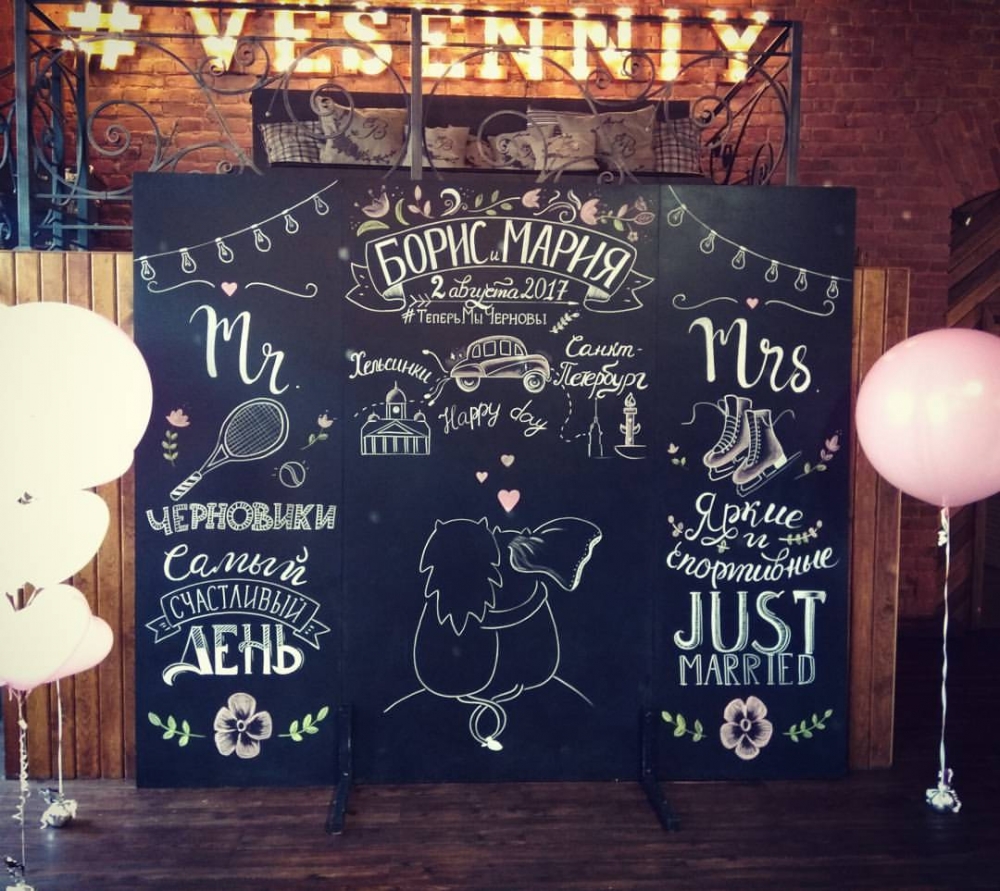 # VESENNIY
БОРИС и МАРИЯ
2 августа 2017
#ТеперьМыЧерновы
Mr.
Хельсинки
Санкт-
Петербург
Happy day
Mrs.
ЧЕРНОВИКИ
Самый
СЧАСТЛИВЫЙ
ДЕНЬ
Яркие
и
спортивные
JUST
MARRIED